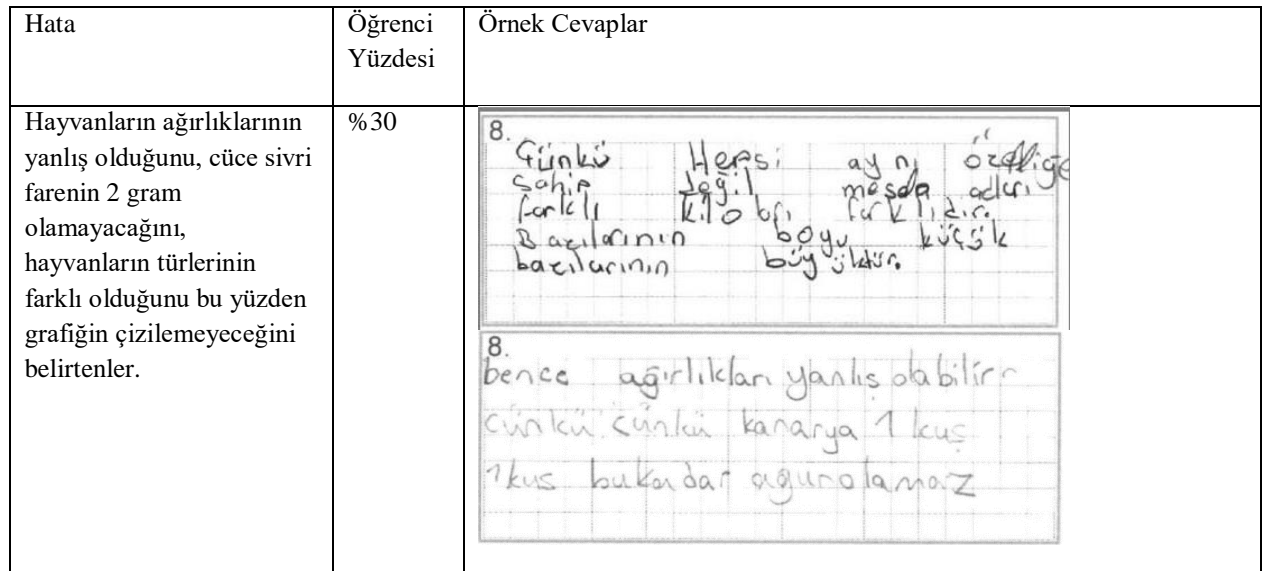 Hata
Öğrenci
Yüzdesi
Örnek Cevaplar
Hayvanların ağırlıklarının
yanlış olduğunu, cüce sivri
farenin 2 gram
olamayacağını,
hayvanların türlerinin
farklı olduğunu bu yüzden
grafiğin çizilemeyeceğini
belirtenler.
%30
8.
Çünkü Hepsi aynı özelliğe
sahip değil mesela adları
farklı kiloları farklıdır.
Bazılarının boyu küçük
bazılarının büyüktür.
8.
bence ağırlıkları yanlış olabilir
çünkü çünkü kanarya 1 kuş
1 kus bukadar agurolamaz